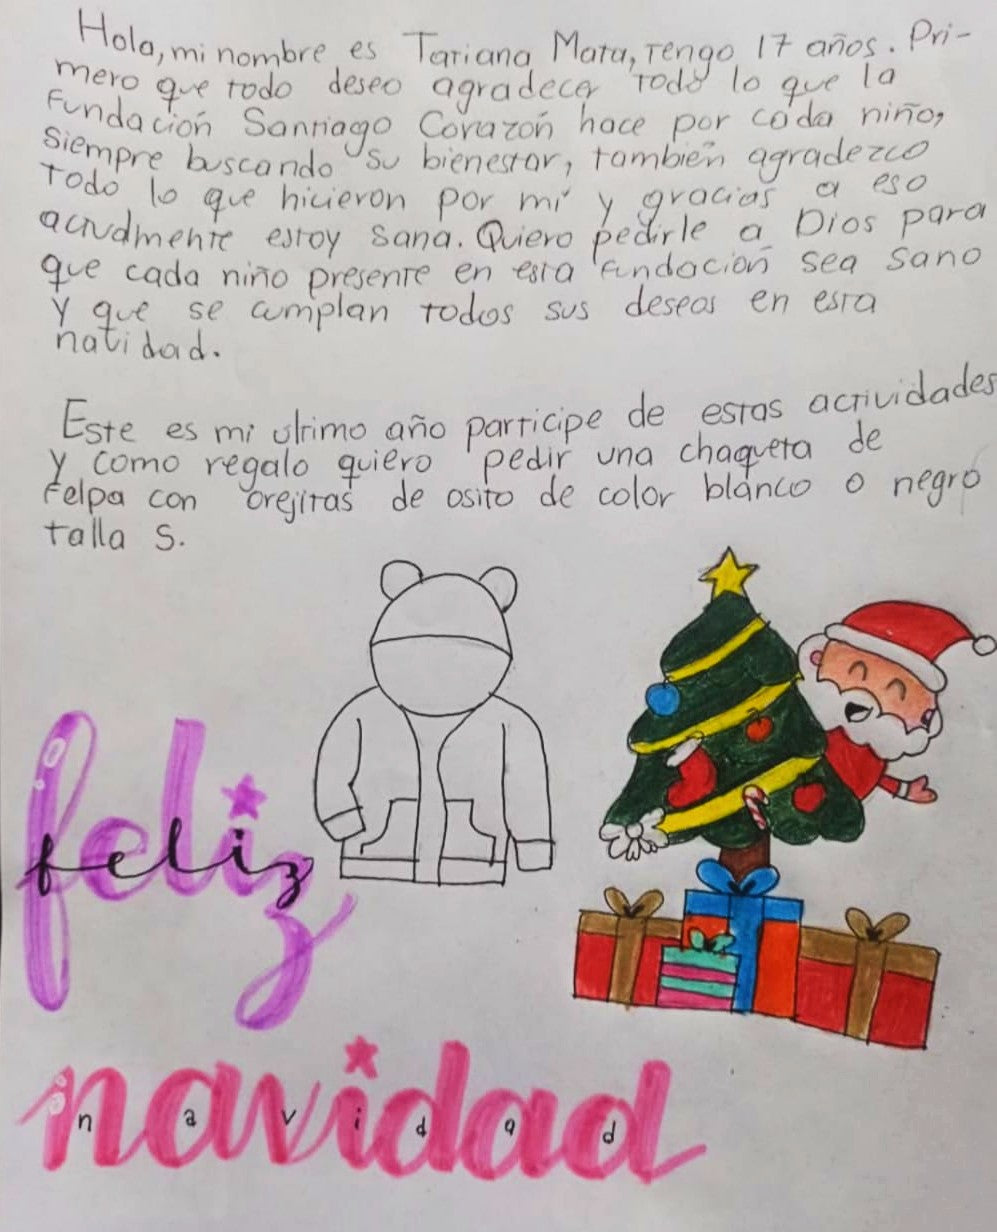 Hola, mi nombre es Tatiana Mata, tengo 17 años. Pri-
mero que todo deseo agradecer todo lo que la
Fundación Santiago Corazón hace por cada niño,
siempre buscando su bienestar, también agradezco
todo lo que hicieron por mí y gracias a eso
actualmente estoy sana. Quiero pedirle a Dios para
que cada niño presente en esta fundación sea sano
y que se cumplan todos sus deseos en esta
navidad.
Este es mi último año participe de estas actividades
y como regalo quiero pedir una chaqueta de
felpa con orejitas de osito de color blanco o negro
talla S.
feliz
feliz
navidad
n a v i d a d